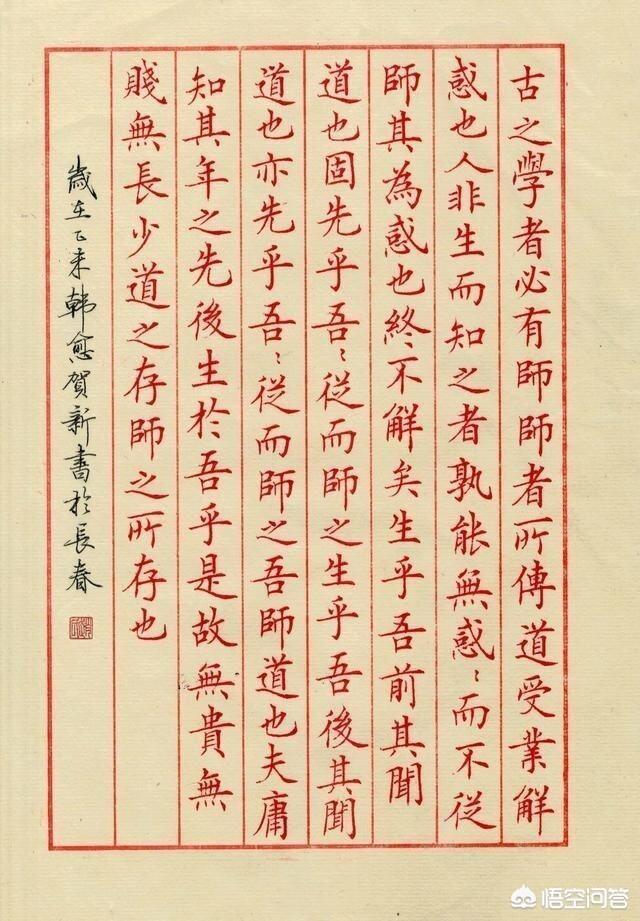 古之學者必有師師者所傳道受業解
惑也人非生而知之者孰能無惑〻而不從
師其為惑也終不解矣生乎吾前其聞
道也固先乎吾〻從而師之生乎吾後其聞
道也亦先乎吾〻從而師之吾師道也夫庸
知其年之先後生於吾乎是故無貴無
賤無長少道之存師之所存也
歲在乙未韓愈賀新書於長春
悟空问答